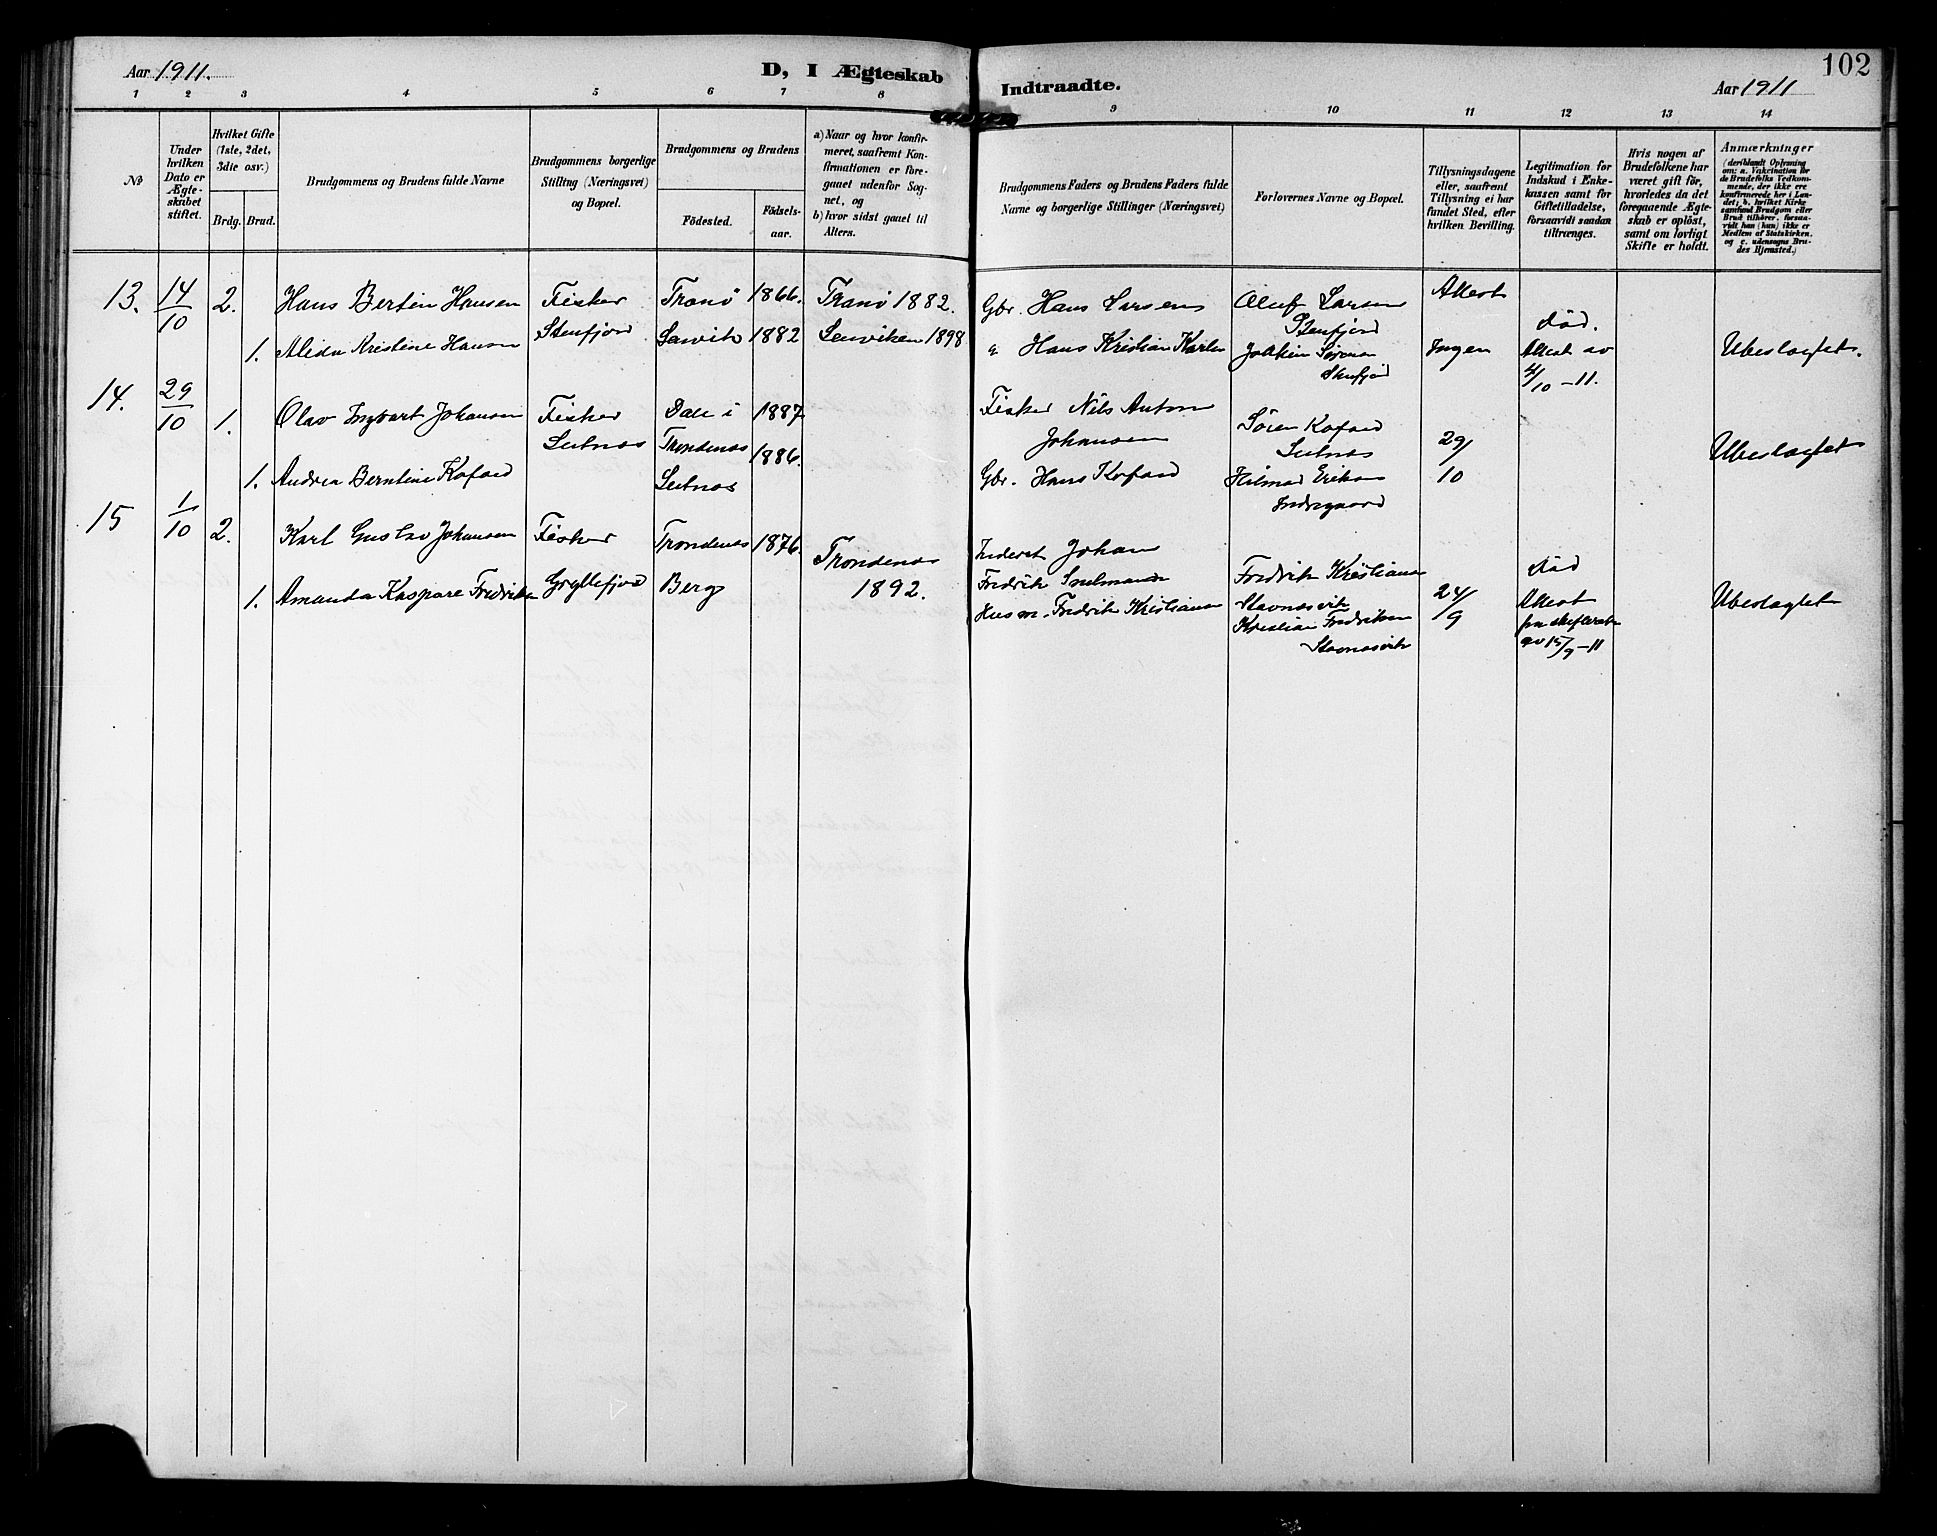 102
Aar 1911.
D, I Ægteskab
Indtraadte.
Aar 1911
1 2 3 4 5 6 7 8 9 10 11 12 13 14
№
Under
hvilken
Dato er
Ægte-
skabet
stiftet.
Hvilket Gifte
(1ste, 2det,
3die osv.)
Brdg. Brud.
Brudgommens og Brudens fulde Navne
Brudgommens borgerlige
Stilling (Næringsvei)
og Bopæl.
Brudgommens og Brudens
Födested.
Födsels-
aar.
a) Naar og hvor konfir-
meret, saafremt Kon-
firmationen er fore-
gaaet udenför Sog-
net, og
b) hvor sidst gaaet til
Alters.
Brudgommens Faders og Brudens Faders fulde
Navne og borgerlige Stillinger (Næringsvei)
Forlovernes Navne og Bopæl.
Tillysningsdagene
eller, saafremt
Tillysning ei har
fundet Sted, efter
hvilken Bevilling.
Legitimation for
Indskud i Enke-
kassen samt for
Giftetilladelse,
forsaavidt saadan
tiltrænges.
Hvis nogen af
Brudefolkene har
været gift för,
hvorledes da det
foregaaende Ægte-
skab er oplöst,
samt om lovligt
Skifte er holdt.
Anmærkninger
(deriblandt Oplysning
om: a. Vakcination for
de Brudefolks Vedkom-
mende, der ikke ere
konfirmerede her i Lan-
det; b. hvilket Kirke-
samfund Brudgom eller
Brud tilhörer, forsaa-
vidt han (hun) ikke er
Medlem af Statskirken,
og c. udensogns Bru-
des Hjemsted.)
13. 14/10 2. Hans Bertin Hansen Fisker Tranö 1866. Tranö 1882. Gbr. Hans Larsen Oluf Larsen Attest
Stenfjord
1. Alida Kristine Hansen Stenfjord Lavik 1882 Lenviken 1898 " Hans Kristian Karls Joakim Sörensen Ingen död. Ubeslægtet.
Stenfjord Attest av
4/10 - 11.
14. 29/10 1. Olav Ingvart Johansen Fisker Dale i 1887 Fisker Nils Anton Sören Kofoed
Selnes Trondenes 1886. Johansen Selnes 29/10 Ubeslægtet
1. Andrea Berntine Kofoed Selnes Gbr. Hans Kofoed Hilmar Eriksen
Indregaard
15 1/10 2. Karl Gustav Johansen Fisker Trondenes 1876. Trondenes Inderst Johan
1. Amanda Kaspare Fredriksen Gryllefjord Berg 1892. Fredrik Fredrik Kristiansen död
Husm. Fredrik Kristiansen Stavnesvik 24/9 Attest Ubeslægtet
Kristian Fredriksen fra skifteret
Stavnesvik av 15/9 - 11